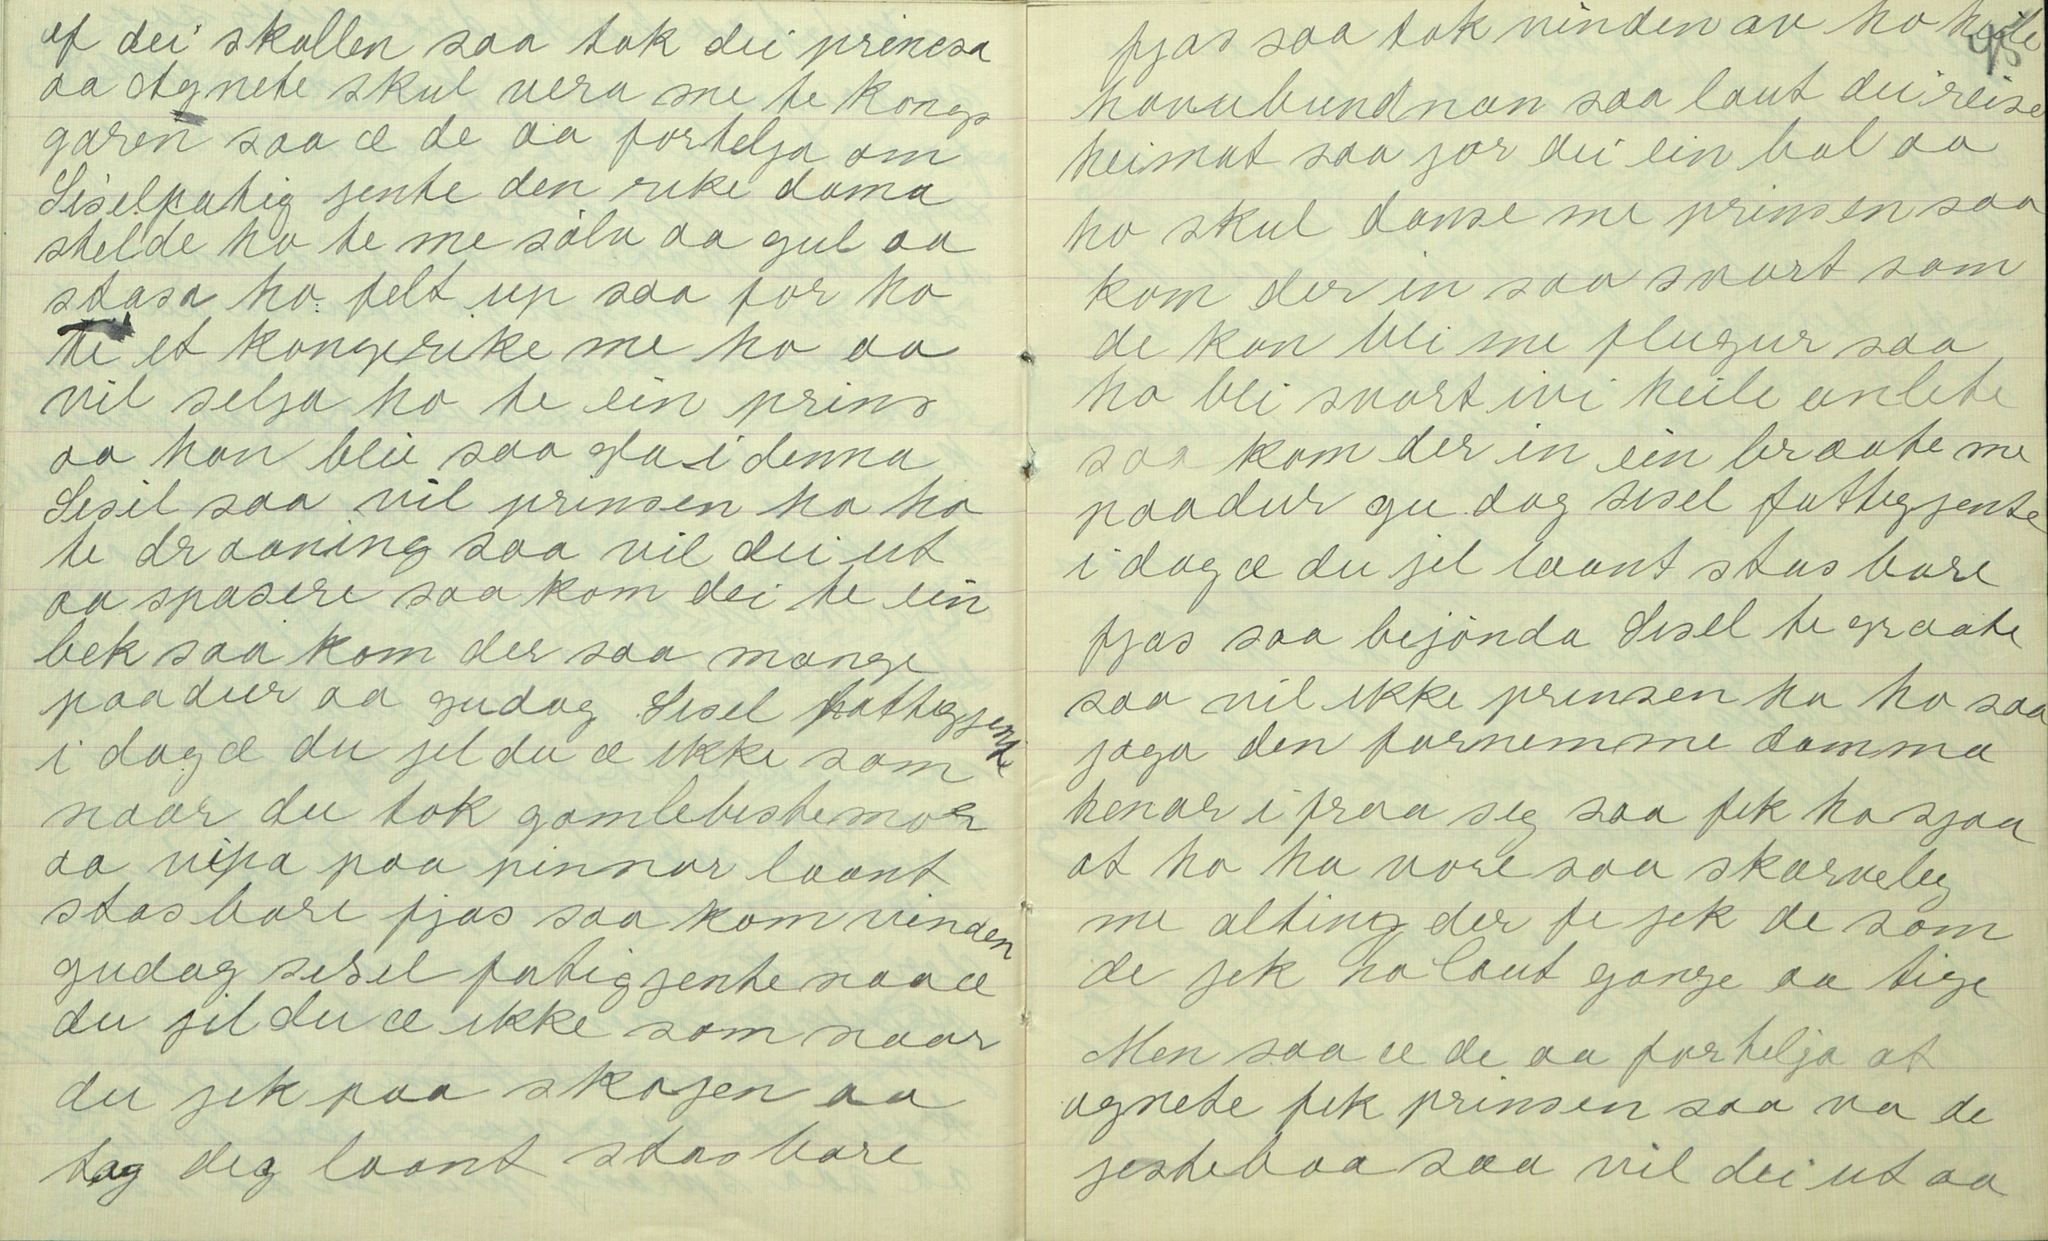 af dei skallen saa tok dei princsa
aa Agnete skul vera me te kongs
garen saa æ de aa fortelja om
Siselfatig jente den rike dama
stelde ho te me sølv aa gul aa
stasa ho felt up saa for ho
te et kongerike me ho aa
vil selja ho te ein prins
aa han blie saa gla i denna
Sesil saa vil prinsen ha ho
te draaning saa vil dei ut
aa spasere saa kom dei te ein
bek saa kom der saa mange
paadur aa gudag Sesel fattigjente
i dag æ du jel du æ ikke som
naar du tok gamlebestemor
aa vipa paa pinnar laant
stas bare fjas saa kom vinden
gudag sesel fatigjente naa æ
du jil du æ ikke som naar
du jek paa skojen aa
tag deg laant stas bare
fjas saa tok vinden av ho heile
havubundnan saa laut dei reise
heimat saa jor dei ein bal aa
ho skul danse me prinsen saa
kom der in saa svart som
de kan bli me flugur saa
ho bli svart ivi heile anlete
saa kom der in ein braate me
paadur gu dag sesel fattigjente
i dag æ du jel laant stas bare
fjas saa bejønda Sesel te graate
saa vil ikke prinsen ha ho saa
jaga den farnemme damma
henar ifraa seg saa fek ho sjaa
at ho ha vore saa skarveleg
me alting der fe jek de som
de jek ho laut gange aa tige
Men saa æ de aa fortelja at
agnete fek prinsen saa va de
jesteboa saa vil dei ut aa